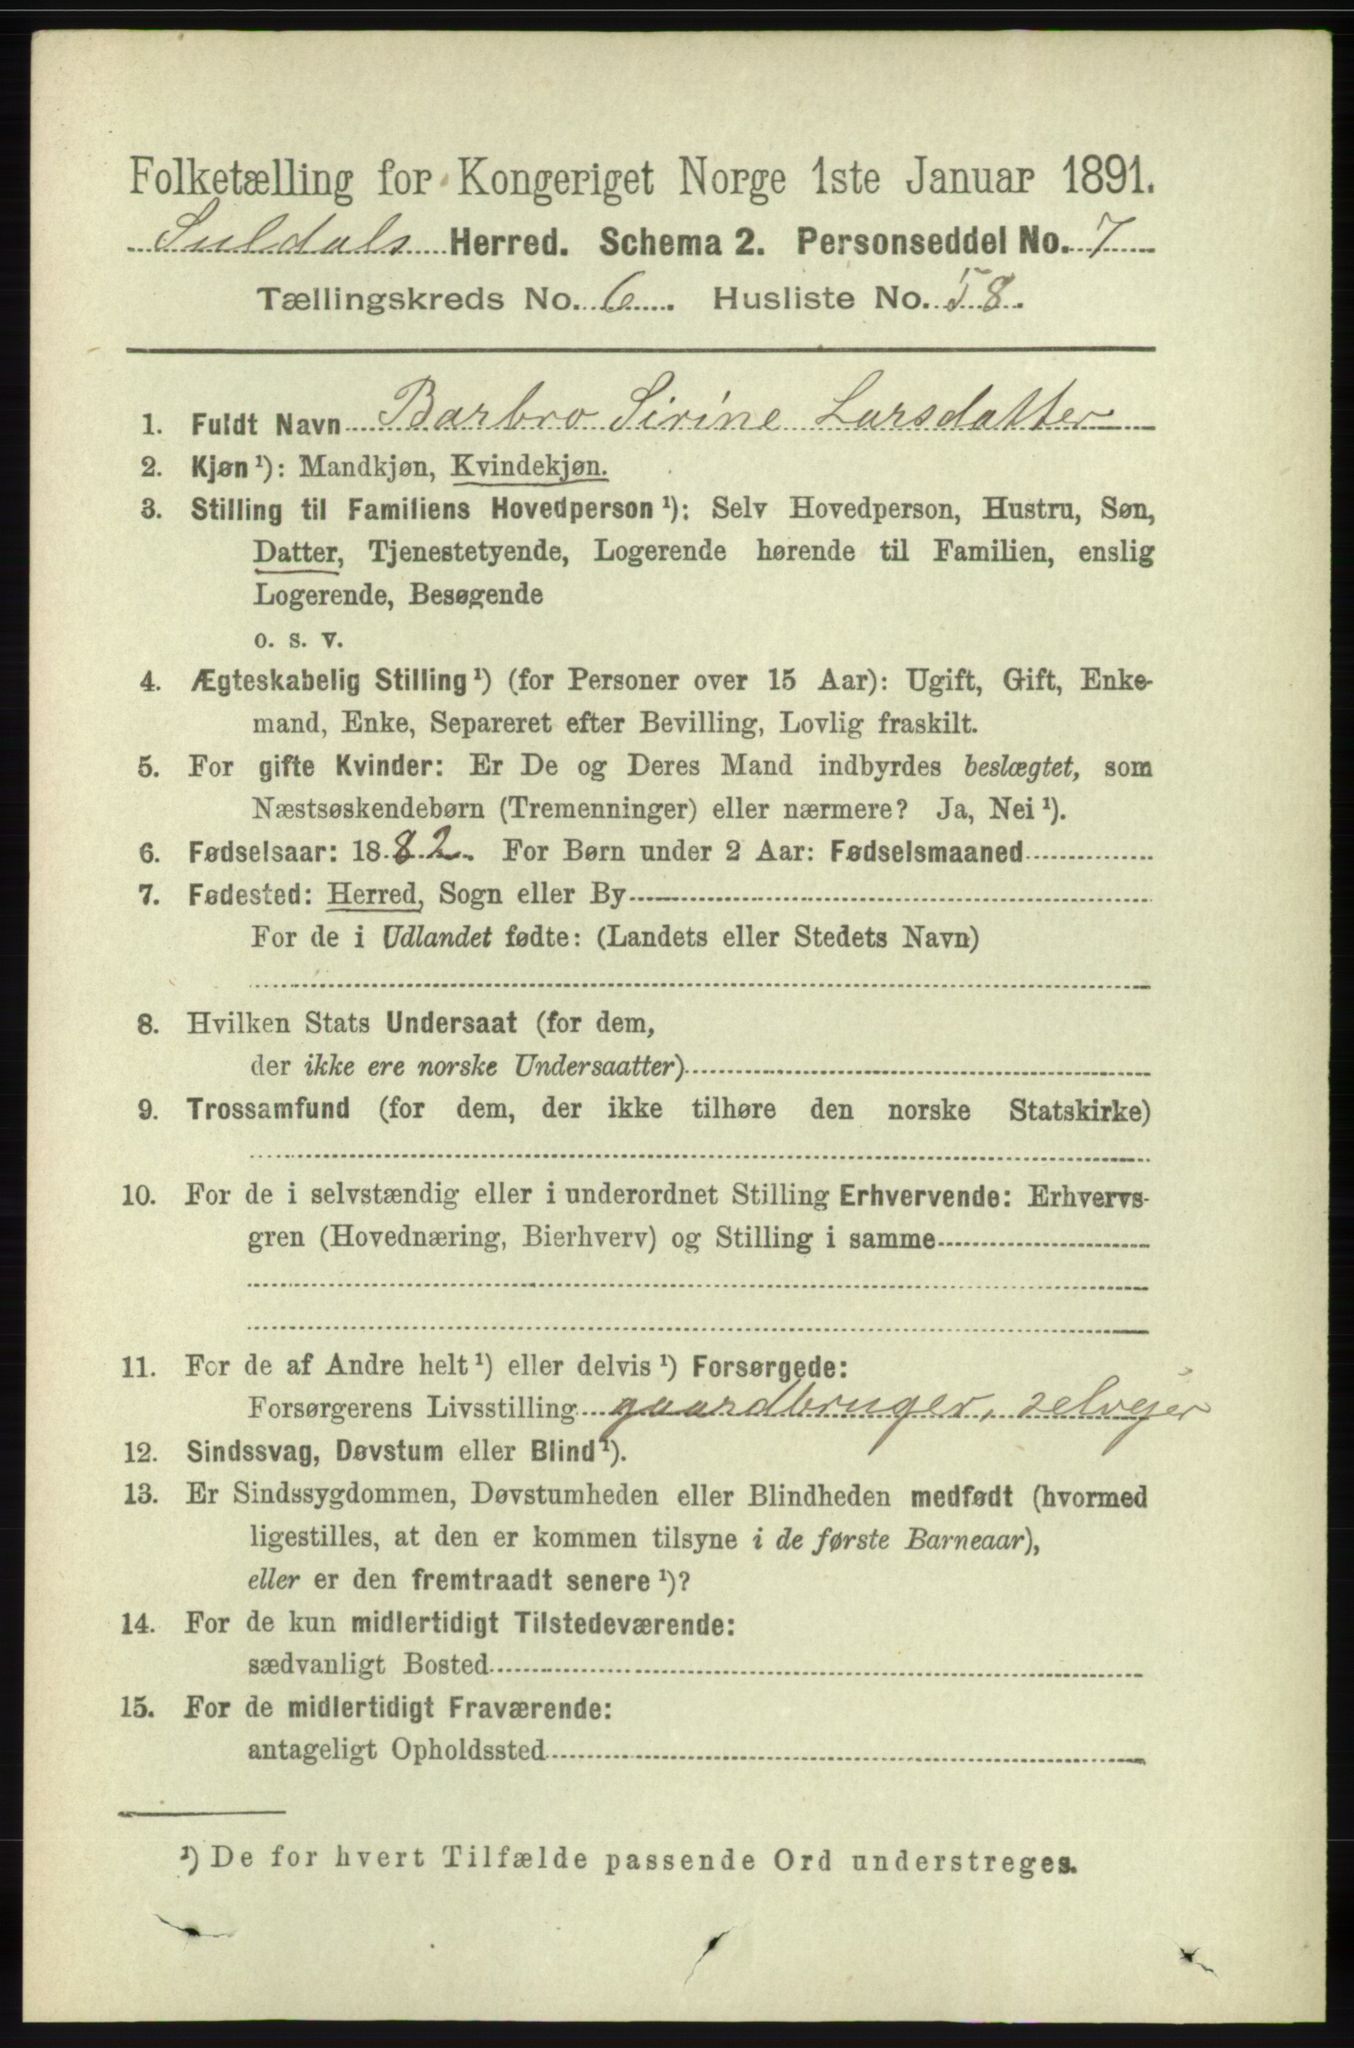 Folketælling for Kongeriget Norge 1ste Januar 1891.
Suldals Herred. Schema 2. Personseddel No. 7
Tællingskreds No. 6. Husliste No. 58.
1. Fuldt Navn Barbro Sirine Larsdatter
2. Kjøn ¹): Mandkjøn, Kvindekjøn.
3. Stilling til Familiens Hovedperson ¹): Selv Hovedperson, Hustru, Søn,
Datter, Tjenestetyende, Logerende hørende til Familien, enslig
Logerende, Besøgende
o. s. v.
4. Ægteskabelig Stilling ¹) (for Personer over 15 Aar): Ugift, Gift, Enke-
mand, Enke, Separeret efter Bevilling, Lovlig fraskilt.
5. For gifte Kvinder: Er De og Deres Mand indbyrdes beslægtet, som
Næstsøskendebørn (Tremenninger) eller nærmere? Ja, Nei ¹).
6. Fødselsaar: 1882. For Børn under 2 Aar: Fødselsmaaned
7. Fødested: Herred, Sogn eller By
For de i Udlandet fødte: (Landets eller Stedets Navn)
8. Hvilken Stats Undersaat (for dem,
der ikke ere norske Undersaatter)
9. Trossamfund (for dem, der ikke tilhøre den norske Statskirke)
10. For de i selvstændig eller i underordnet Stilling Erhvervende: Erhvervs-
gren (Hovednæring, Bierhverv) og Stilling i samme
11. For de af Andre helt ¹) eller delvis ¹) Forsørgede:
Forsørgerens Livsstilling gaardbruger, selvejer
12. Sindssvag, Døvstum eller Blind ¹).
13. Er Sindssygdommen, Døvstumheden eller Blindheden medfødt (hvormed
ligestilles, at den er kommen tilsyne i de første Barneaar),
eller er den fremtraadt senere ¹)?
14. For de kun midlertidigt Tilstedeværende:
sædvanligt Bosted
15. For de midlertidigt Fraværende:
antageligt Opholdssted
¹) De for hvert Tilfælde passende Ord understreges.